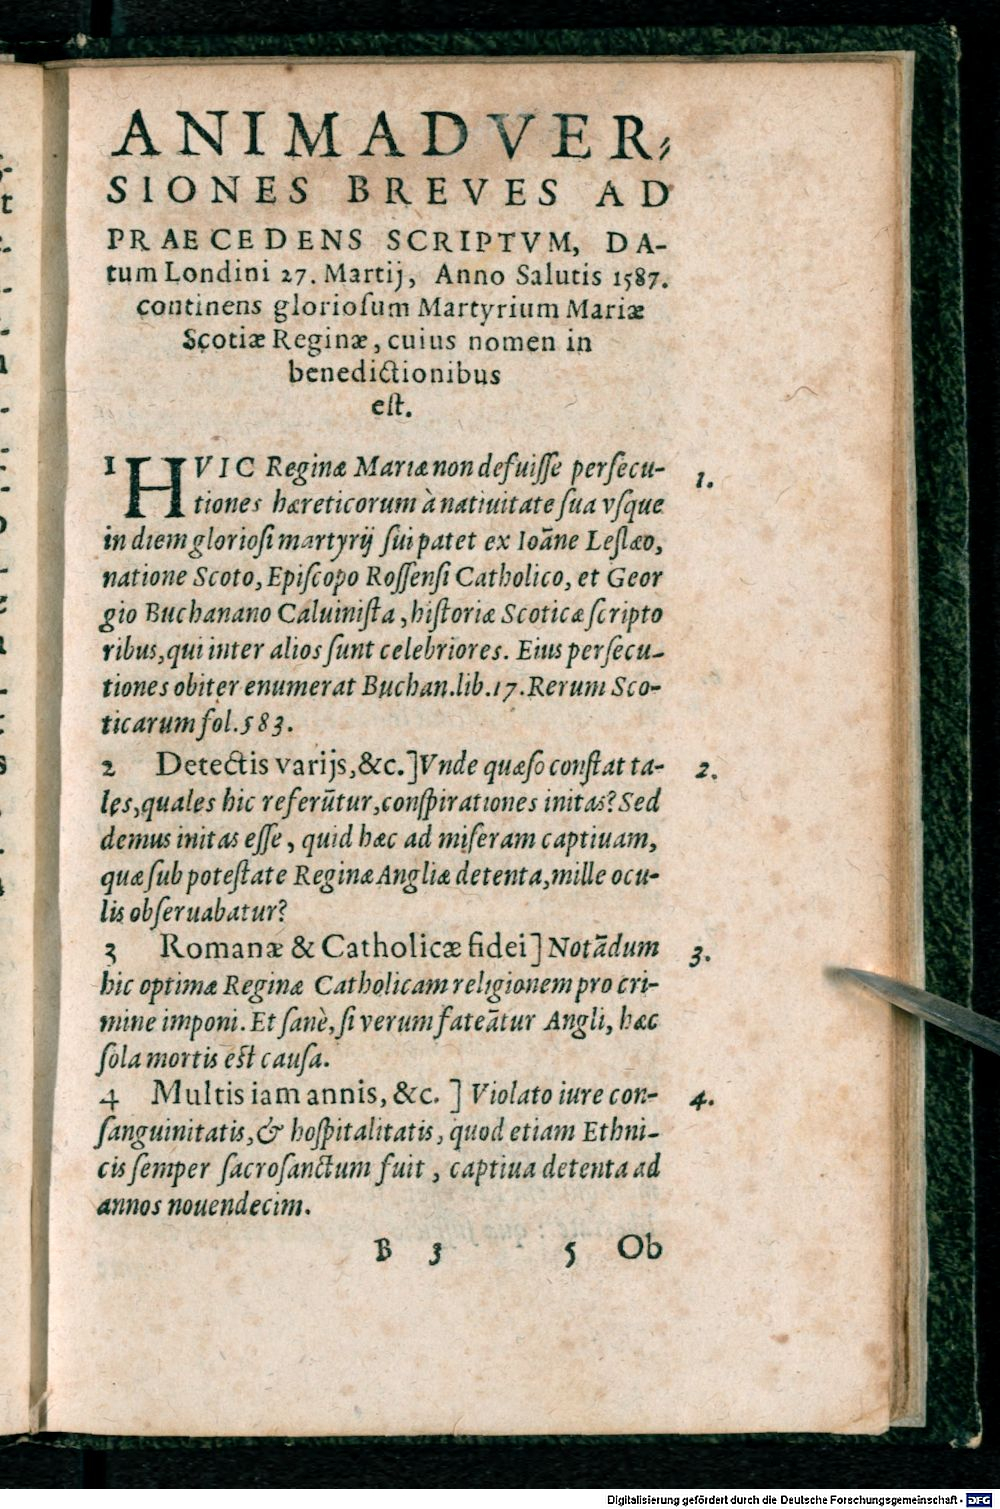 ANIMADVER-
SIONES BREVES AD
PRAECEDENS SCRIPTVM, DA-
tum Londini 27. Martij, Anno Salutis 1587.
continens glorioſum Martyrium Mariæ
Scotiæ Reginæ, cuius nomen in
benedictionibus
eſt.
1 HVIC Reginæ Mariæ non defuiſſe perſecu- 1.
tiones hæreticorum à natiuitate ſua vſque
in diem glorioſi martyrij ſui patet ex Ioāne Leſlæo,
natione Scoto, Epiſcopo Roſſenſi Catholico, et Geor
gio Buchanano Caluiniſta, hiſtoriæ Scoticæ ſcripto
ribus, qui inter alios ſunt celebriores. Eius perſecu-
tiones obiter enumerat Buchan. lib. 17. Rerum Sco-
ticarum fol. 583.
2 Detectis varijs, &c.] Vnde quæſo conſtat ta- 2.
les, quales hic referūtur, conſpirationes initas? Sed
demus initas eſſe, quid hæc ad miſeram captiuam,
quæ ſub poteſtate Reginæ Angliæ detenta, mille ocu-
lis obſeruabatur?
3 Romanæ & Catholicæ fidei] Notādum 3.
hic optimæ Reginæ Catholicam religionem pro cri-
mine imponi. Et ſanè, ſi verum fateātur Angli, hæc
ſola mortis eſt cauſa.
4 Multis iam annis, &c. ] Violato iure con- 4.
ſanguinitatis, & hoſpitalitatis, quod etiam Ethni-
cis ſemper ſacroſanctum fuit, captiua detenta ad
annos nouendecim.
B 3 5 Ob
Digitalisierung gefördert durch die Deutsche Forschungsgemeinschaft - DFG